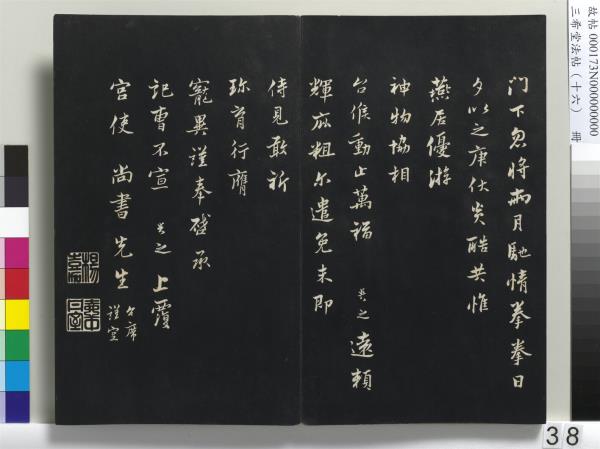 故帖 000173N000000000
三希堂法帖（十六） 冊
門下忽將兩月馳情拳拳日
夕以之庚伏炎酷共惟
燕居優游
神物協相
台候動止萬福 共之 遠賴
輝庥粗尔遣免未即
侍見敢祈
珍育行膺
寵異謹奉啓承
記曹不宣 共之 上覆
宫使 尚書 先生
台席
謹空
38